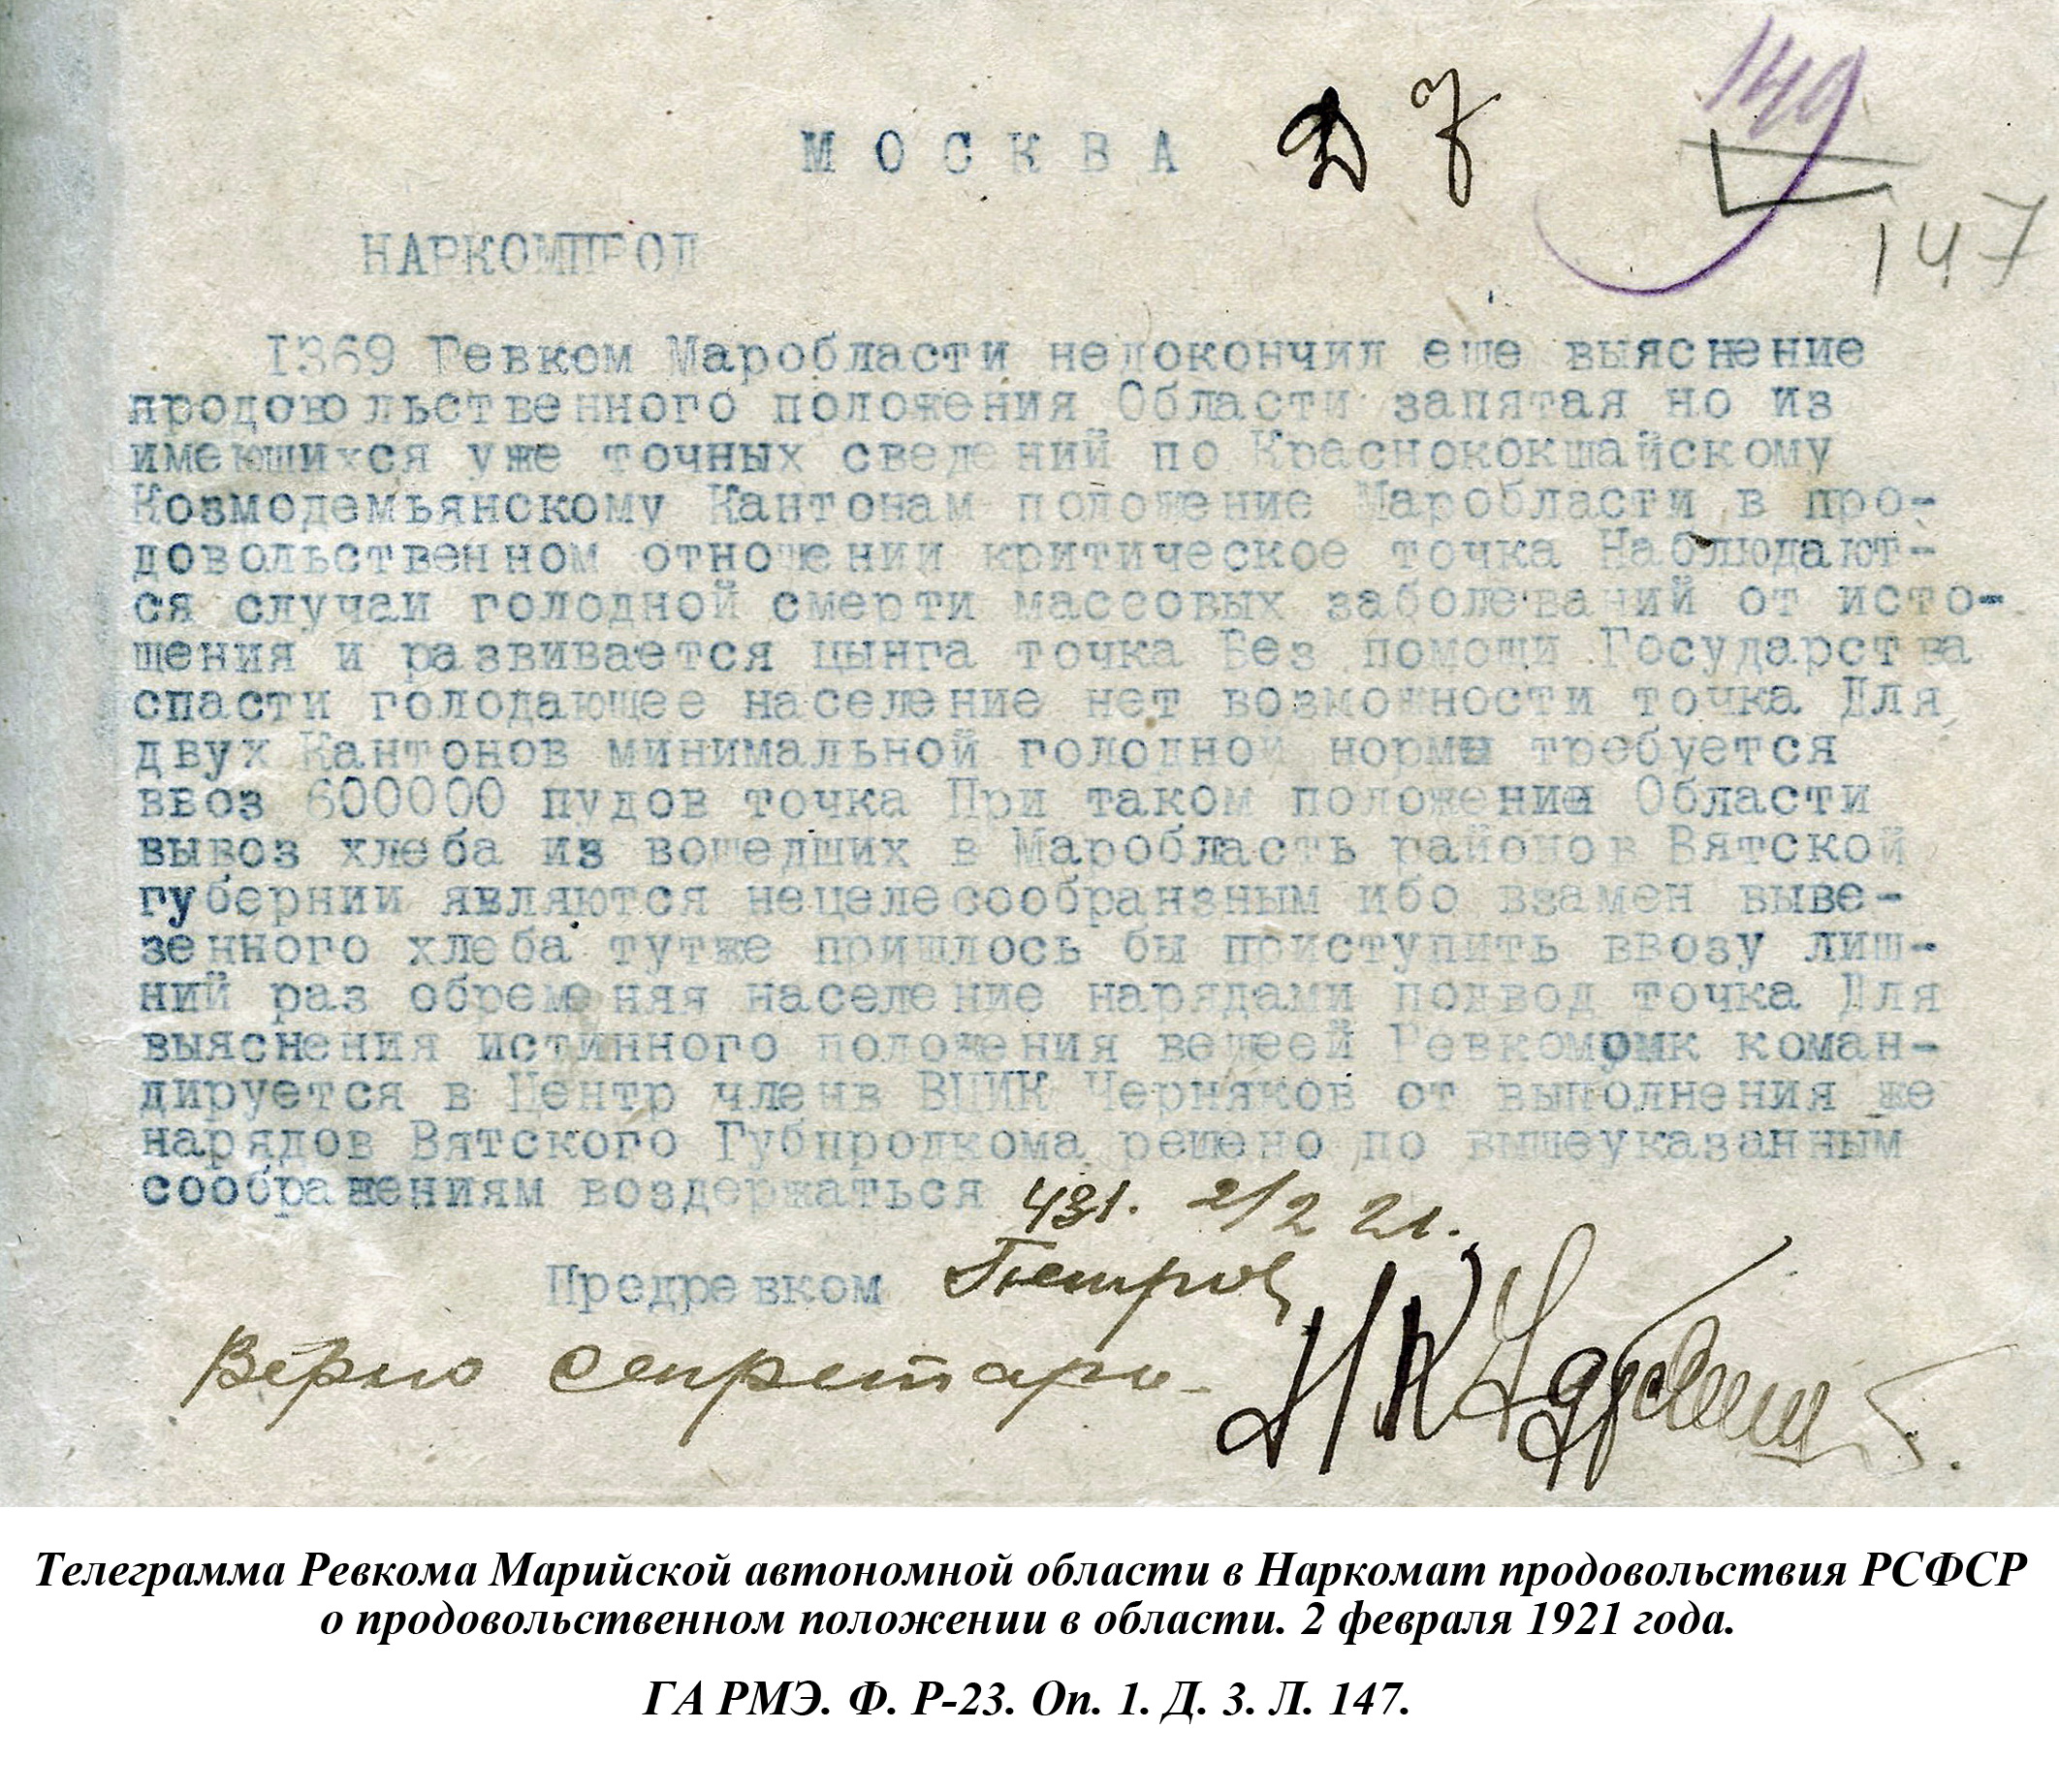 149
М О С К В А Д 3
147
НАРКОМПРОД
1369 Ревком Маробласти недокончил еше выяснение
продовольственного положения Области запятая но из
имеющихся уже точных сведений по Краснококшайскому
Козмодемьянскому Кантонам положение Маробласти в про-
довольственном отношении критическое точка Наблюдают-
ся случаи голодной смерти массовых заболеваний от исто-
щения и развивается цынга точка Без помощи Государства
спасти голодающее население нет возможности точка Для
двух Кантонов минимальной голодной нормы требуется
ввоз 600000 пудов точка При таком положении Области
вывоз хлеба из вошедших в Маробласть районов Вятской
губернии являются нецелесообранзным ибо взамен выве-
зенного хлеба тутже пришлось бы приступить ввозу лиш-
ний раз обременяя население нарядами подвод точка Для
выяснения истинного положения вещеей Ревкомомк коман-
дируется в Центр членв ВЦИК Черняков от выполнения же
нарядов Вятского Губпродкома решено по вышеуказанным
соображениям воздержаться 431. 2/2 21.
Предревком Петров
Верно секретарь
Телеграмма Ревкома Марийской автономной области в Наркомат продовольствия РСФСР
о продовольственном положении в области. 2 февраля 1921 года.
ГА РМЭ. Ф. Р-23. Оп. 1. Д. 3. Л. 147.